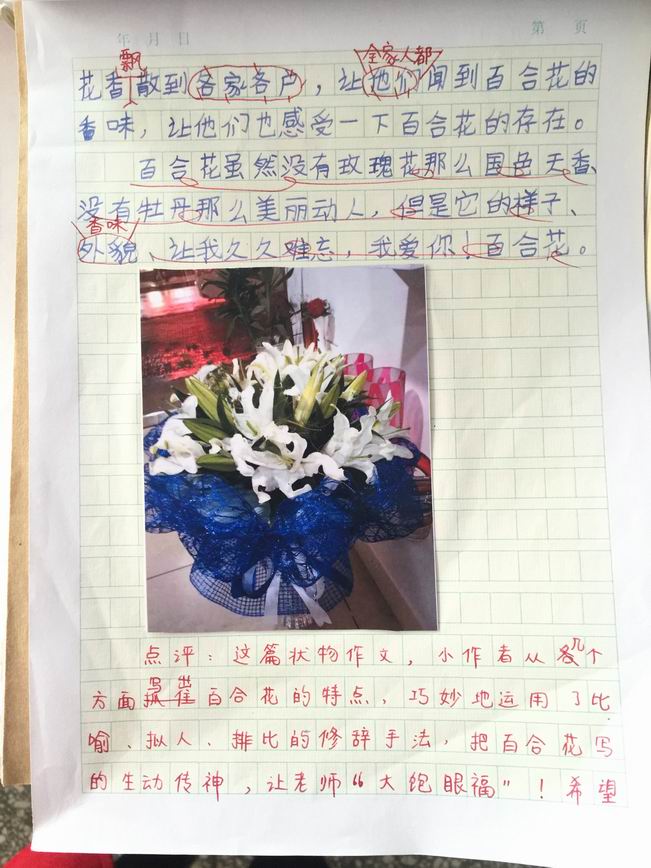 年 月 日 第 页
飘 全家人都
花香散到各家各户，让他们闻到百合花的
香味，让他们也感受一下百合花的存在。
百合花虽然没有玫瑰花那么国色天香、
没有牡丹那么美丽动人，但是它的样子、
香味
外貌、让我久久难忘，我爱你！百合花。
点评：这篇状物作文，小作者从各几个
写出
方面抓住百合花的特点，巧妙地运用了比
喻、拟人、排比的修辞手法，把百合花写
的生动传神，让老师“大饱眼福”！希望